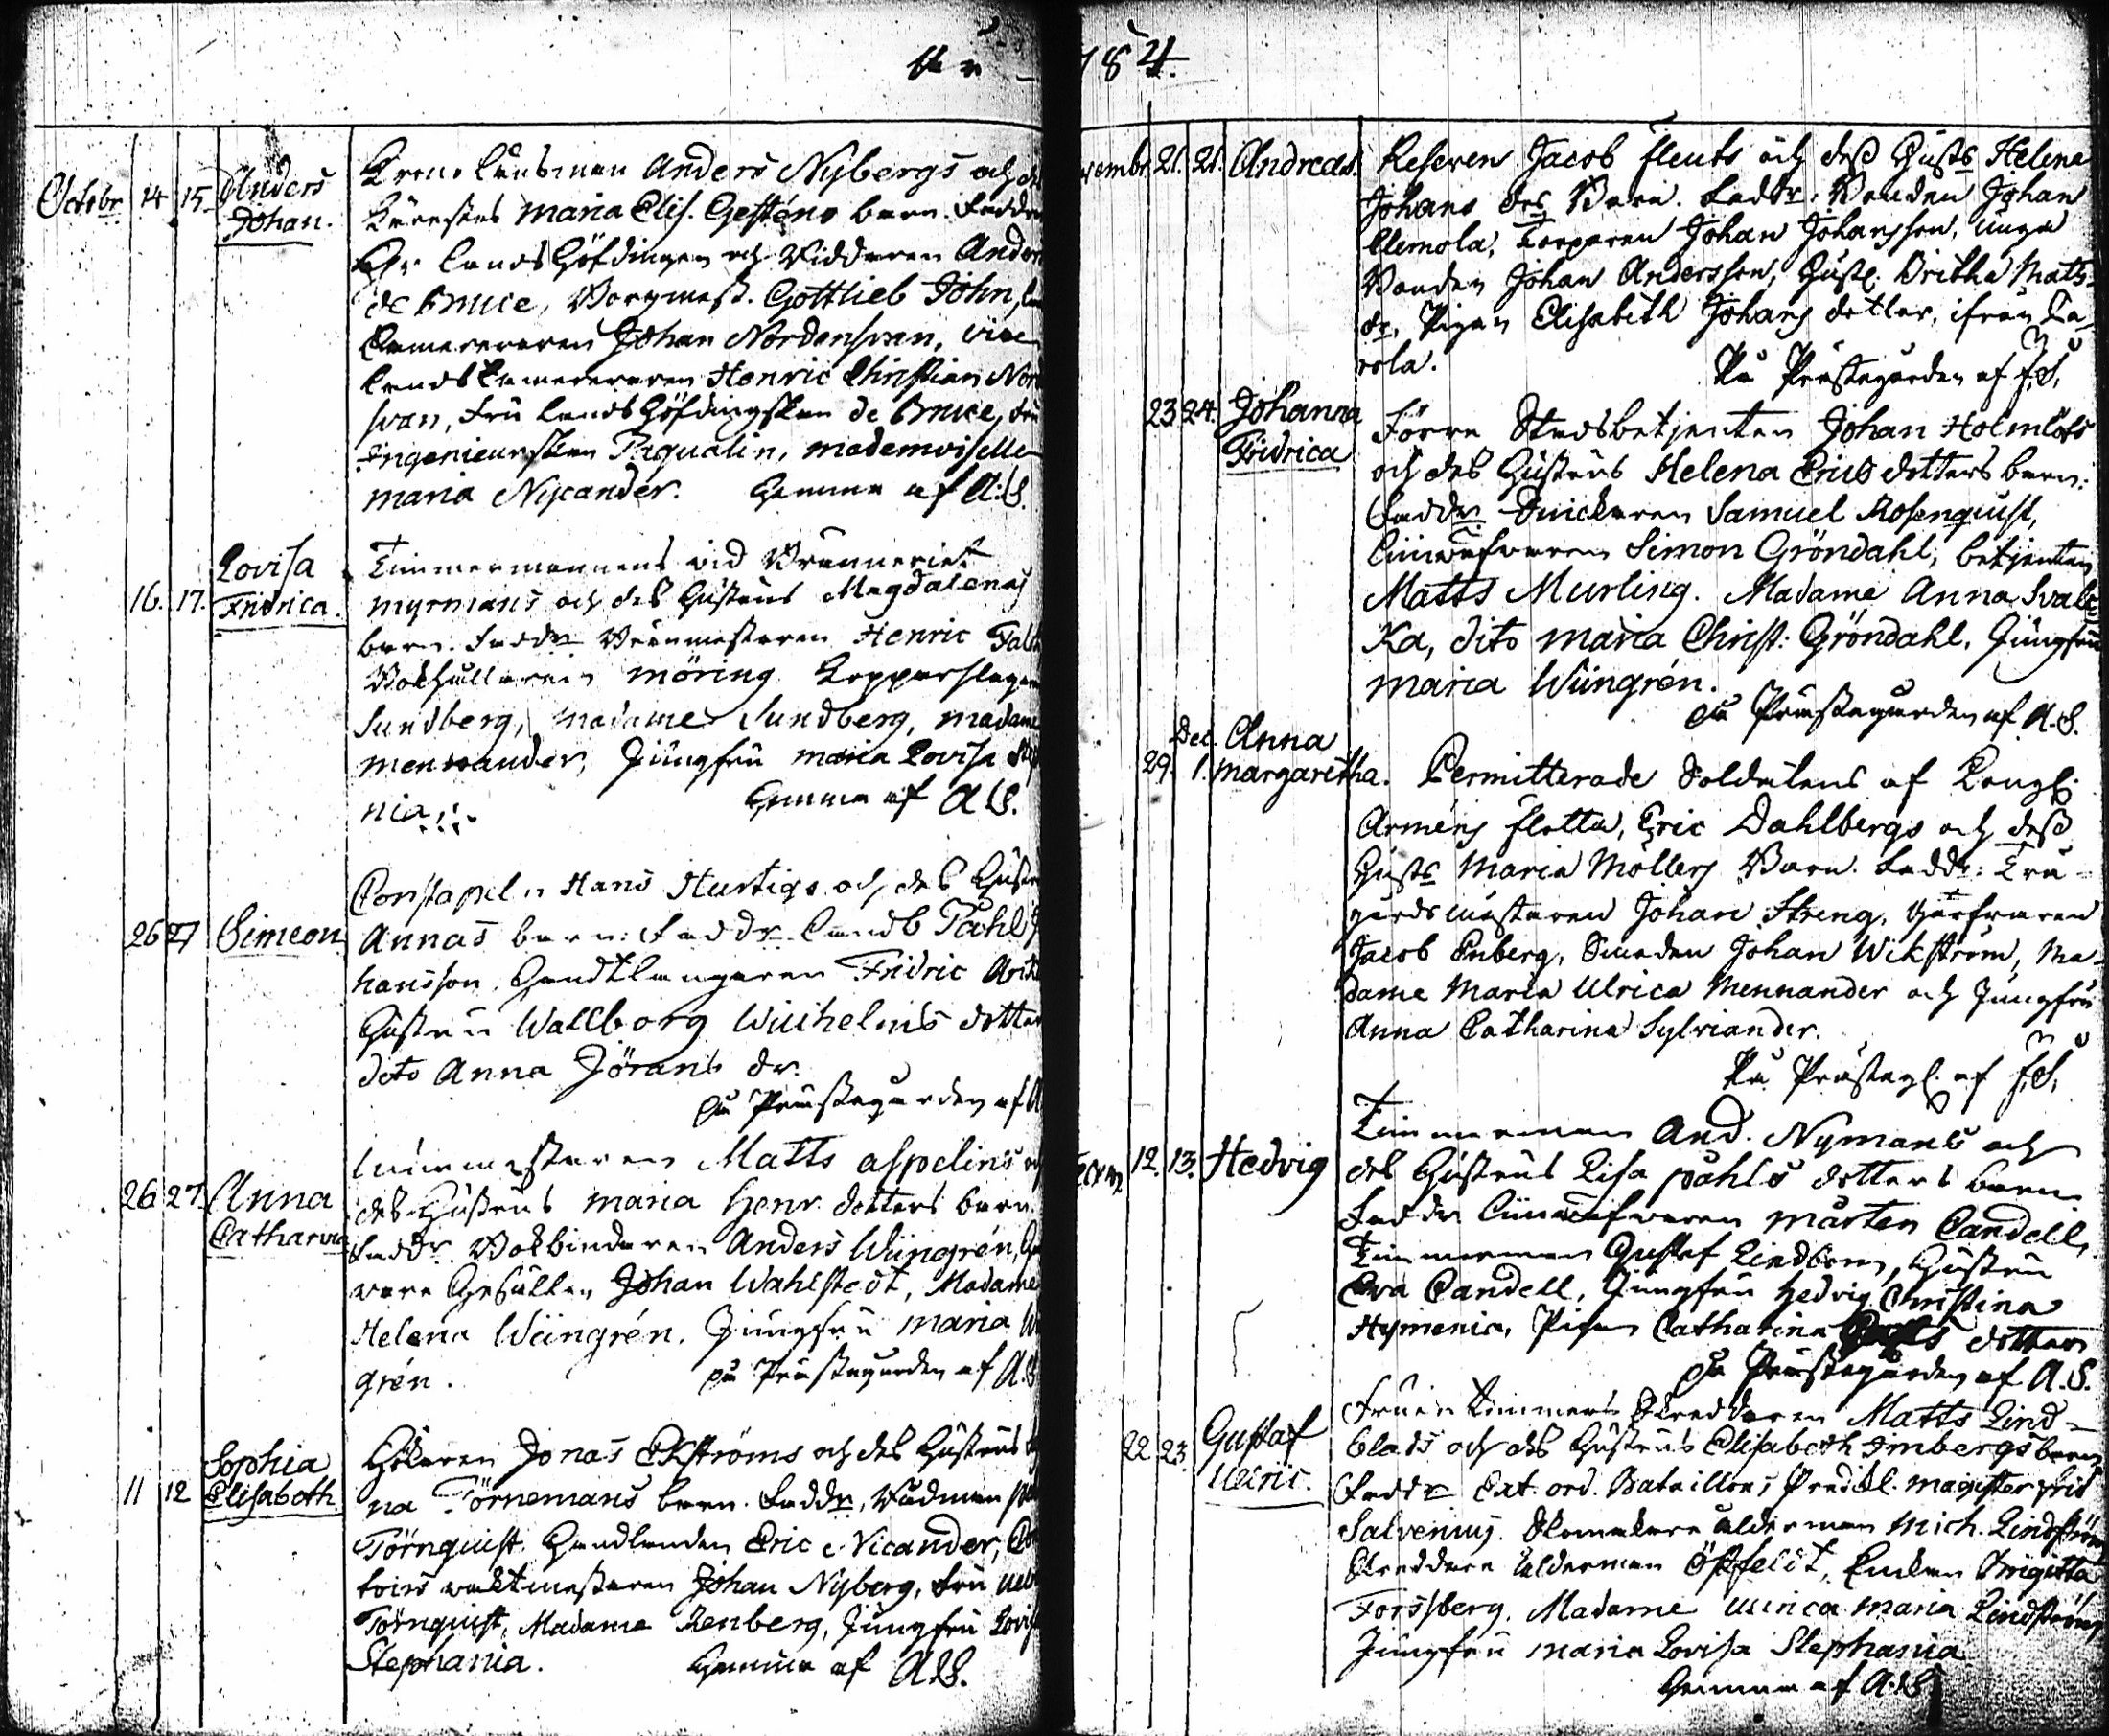 År
Octobr. 14. 15. Anders
Johan.
Krono Länsman Anders Nybergs och
Kärestes Maria Elis. Gesténs barn. Faddr
Hr Lands Höfdingen och Riddaren Anders
de Bruce, Borgmest. Gottlieb John,
Camereraren Johan Nordensvan, vice
Lands Camereraren Henric Christian Nor
svan, Fru Lands Höfdingskan de Bruce, Fru
Ingenieurskan Paqualin, mademoiselle
Maria Nycander. Hemma af A.S.
16. 17. Lovisa
Fridrica.
Timmermannens vid Bränneriet
Myrmans och des Hustrus Magdalenas
barn. Faddr Brännmästaren Henric
Bokhållaren Möring Kopparslagar
Sundberg, Madame Sundberg, Madame
Mennander, Jungfru Maria Lovisa
nia.
Hemma af A.S.
26 27 Simeon
Constapeln Hans Hurtigs och des Hustr
Annas barn: Faddr Landb Påhl
hansson, Handtlangaren Fridric
Hustru Wallborg Wilhelms dotter
dito Anna Jörans dr.
på Prästegården af A
26 27. Anna
Catharina
Matts Aspelins och
des Hustrus Maria Henr. dotters barn
Faddr Bokbindaren Anders Wiingrén,
vare Gesällen Johan Wahlstedt, Madame
Helena Wiingrén, Jungfru Maria Wi
grén. på Prästegården af A.S
11 12 Sophia
Elisabeth
Hökaren Jonas Ekströms och des Hustrus
na Törnemans barn. Faddr, Rådman
Törnquist Handlanden Eric Nicander,
toirs vaktmästaren Johan Nyberg, Fru
Törnquist, Madame Renberg, Jungfru Lovisa
Stephania. Hemma af A.S.
1784.
21. 21. Andreas.
Reserven Jacob Flents och dess Hustr Helena
Johans drs Barn. Faddr: Bonden Johan
Clemola, Torparen Johan Johansson, unga
Bonden Johan Andersson, Hust. Britha Mats-
dr, Pigan Elisabeth Johans dotter, ifrån
rola.
På Prästegården af
23. 24. Johanna
Fridrica
Förre Stadsbetjenten Johan Holmlöfs
och des Hustrus Helena Erics dotters barn:
Faddr Snickaren Samuel Rosenquist,
Linväfvaren Simon Gröndahl, betjenten
Matts Murling. Madame Anna
ka, dito Maria Christ: Gröndahl, Jungfru
Maria Wiingrén.
på Prästegården af A.S.
29. Dec. 1. Anna
Margaretha.
Permitterade Soldatens af Kongl.
Arméns flotta, Eric Dahlbergs och dess
Hustr Maria Mollers Barn. Faddr: Trä-
gårdsmästaren Johan Streng, Garfvaren
Jacob Enberg, Smeden Johan Wikström, Ma-
dame Maria Ulrica Mennander och Jungfru
Anna Catharina Sylviander.
På Prästeg. af
12. 13. Hedvig
Timmerman And. Nymans och
des Hustrus Lisa Påhls dotters barn
Faddr Linväfvaren Mårten Candell,
Timmerman Gustaf Lindbom, Hustru
Eva Candell, Jungfru Hedvig Christina
Hymenia, Pigan Catharina dotter
på Prästegården af A.S.
22 23. Gustaf
Ulric.
Skreddaren Matts Lind-
blads och des Hustrus Elisabeth Imbergs barn
Faddr Ext. ord. Bataillons Predik. Magister
Salvenius. Skomakare ålderman Mich. Lindström
Skreddare ålderman Östfeldt, Enkan Brigitta
Forssberg, Madame Ulrica Maria Lindström
Jungfru Maria Lovisa Stephania
Hemma af A.S